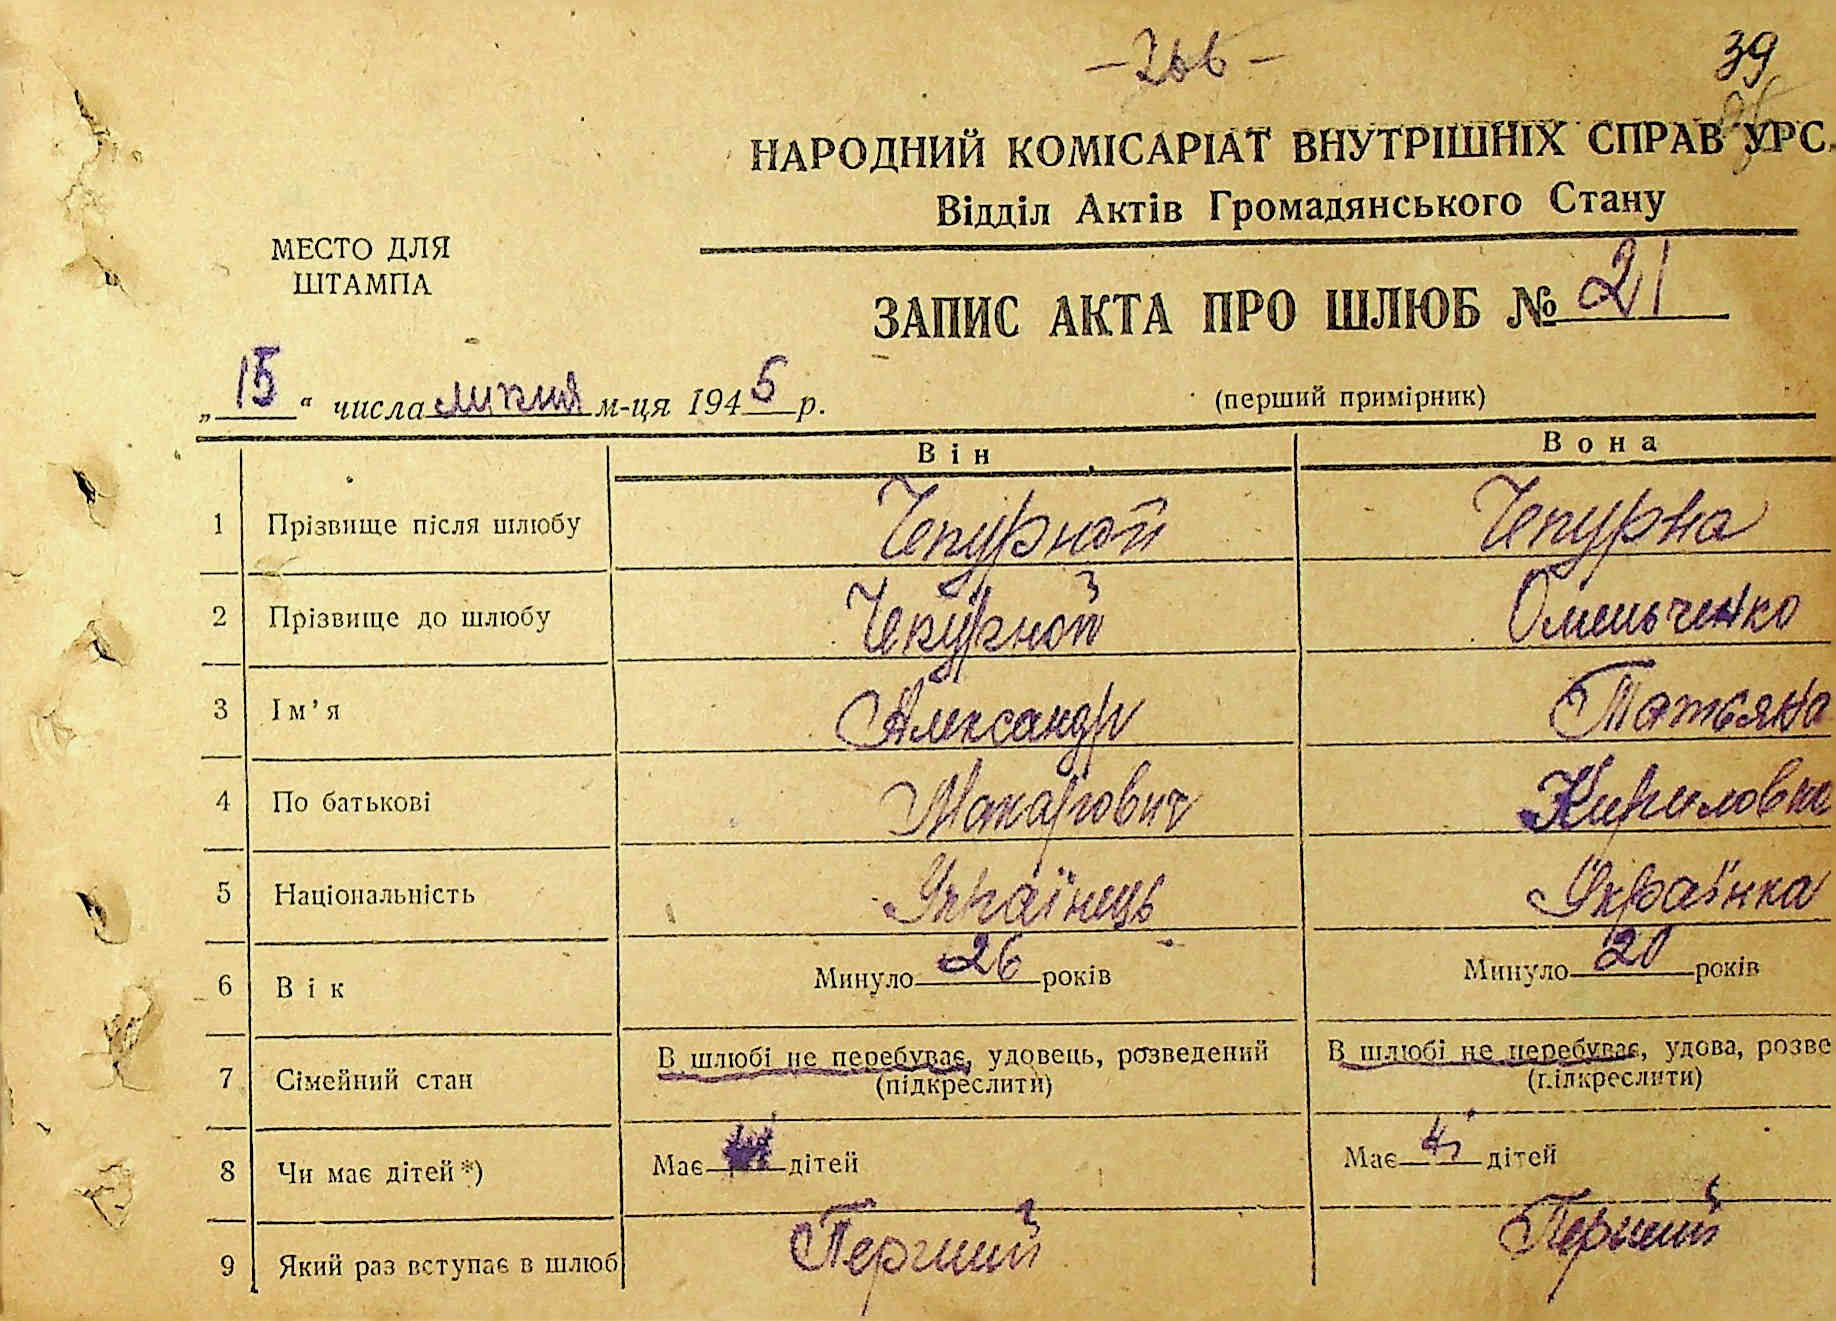 39
НАРОДНИЙ КОМІСАРІАТ ВНУТРІШНІХ СПРАВ УРС
Відділ Актів Громадянського Стану
МЕСТО ДЛЯ
ШТАМПА
ЗАПИС АКТА ПРО ШЛЮБ № 21
„15“ числа липня м-ця 1945 р.
(перший примірник)
Він Вона
1 Прізвище після шлюбу Чепурной Чепурна
2 Прізвище до шлюбу Чепурной Омельченко
3 Ім’я Александр Татьяна
4 По батькові Макарович Кириловна
5 Національність Українець Українка
6 Вік Минуло 26 років Минуло 20 років
7 Сімейний стан В шлюбі не перебуває, удовець, розведений В шлюбі не перебуває, удова, розве
(підкреслити) (підкреслити)
8 Чи має дітей*) Має дітей Має дітей
9 Який раз вступає в шлюб Перший Перший